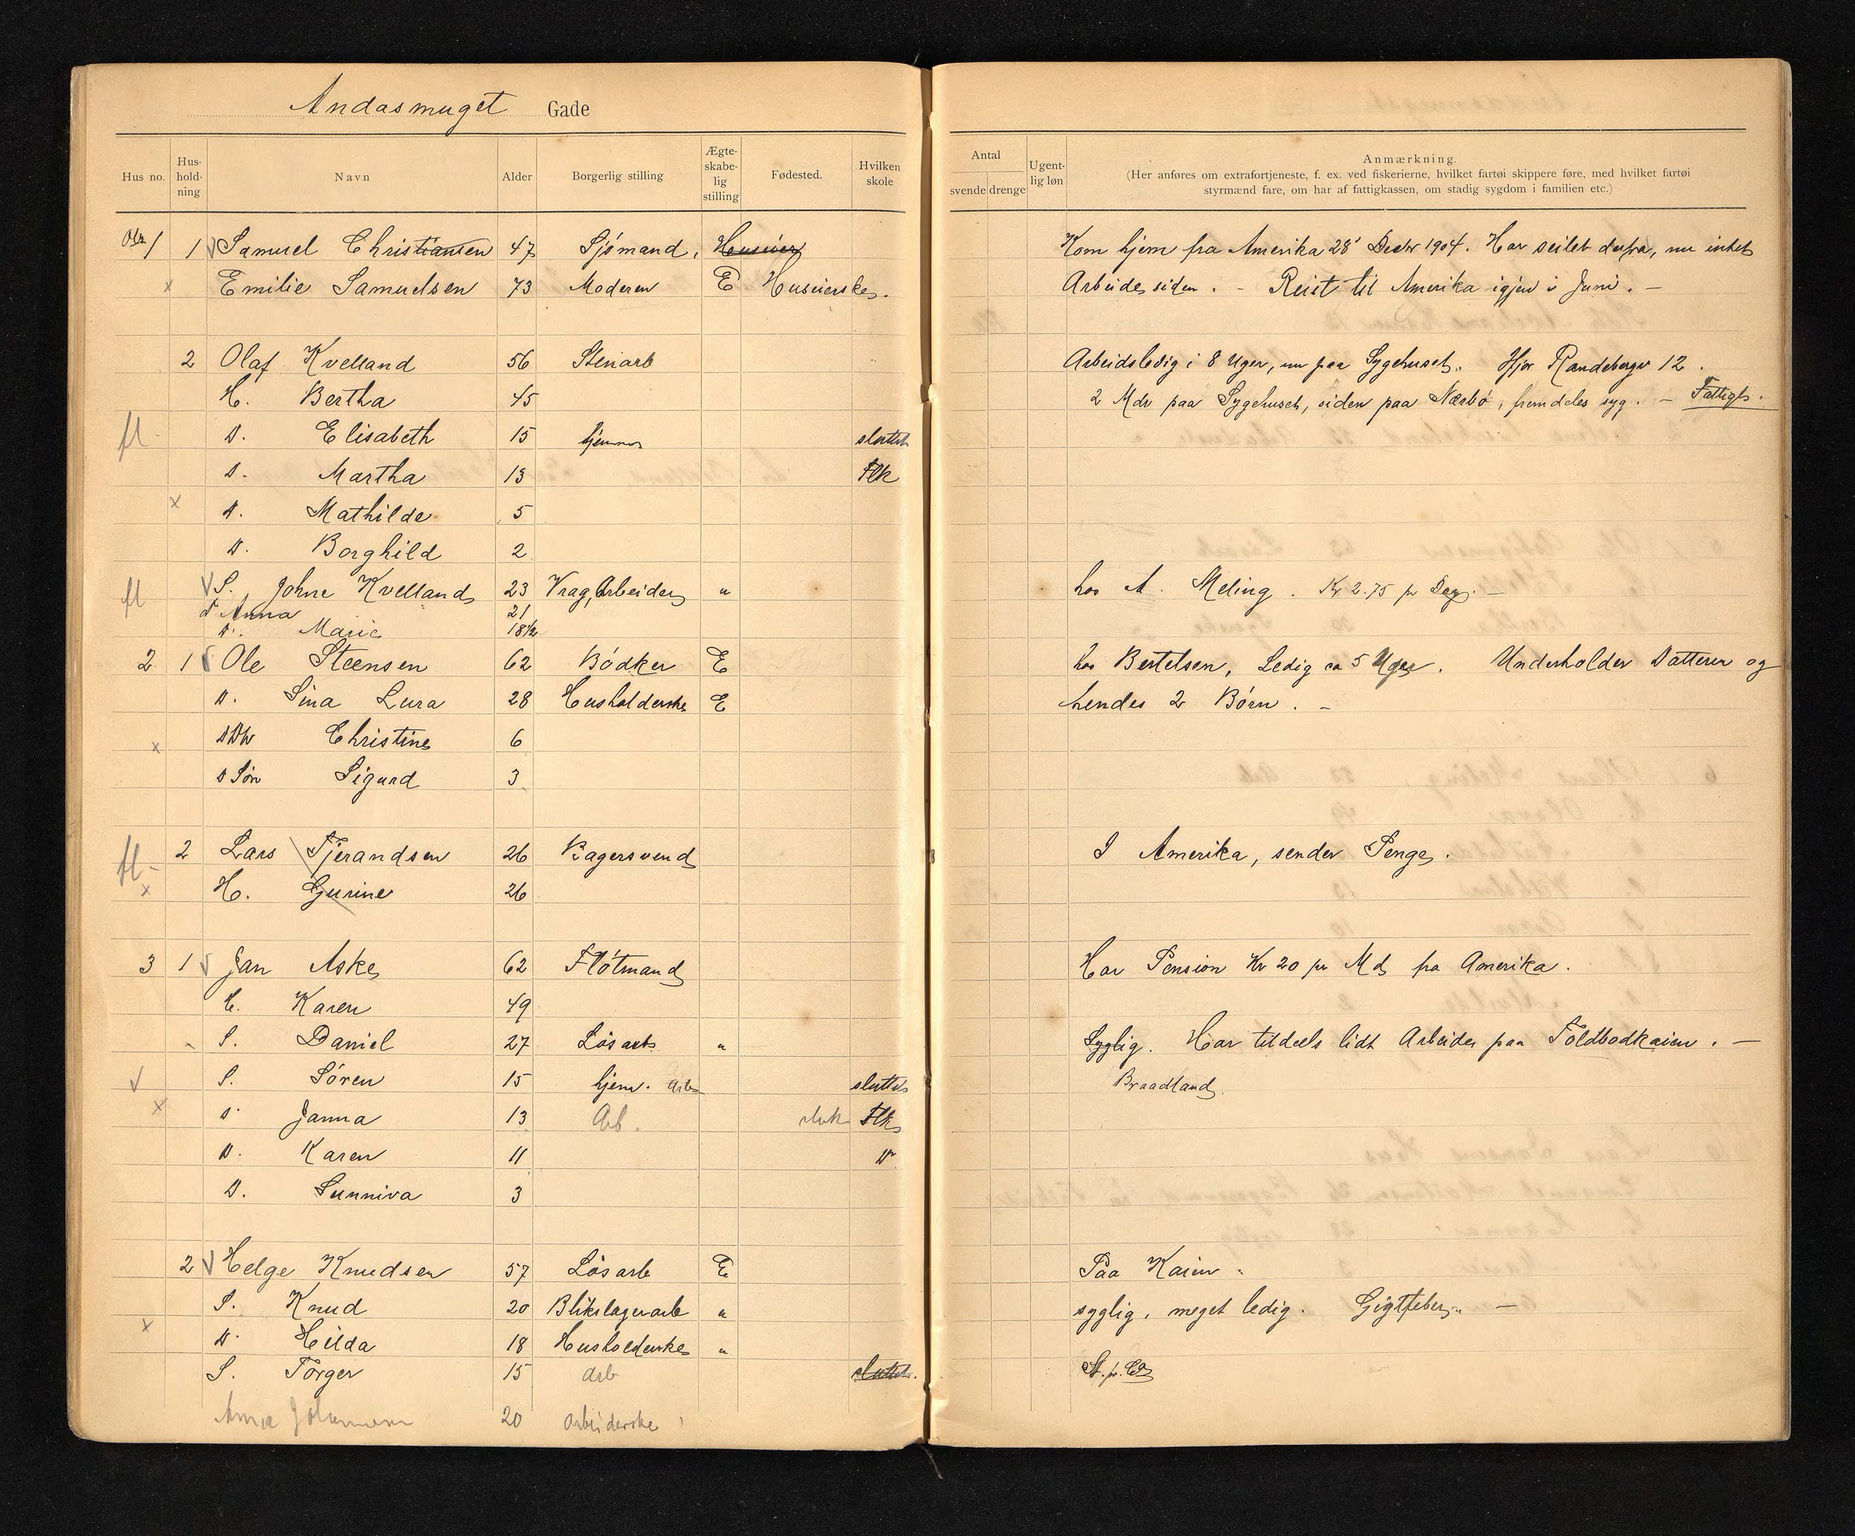 Andasmuget Gade
Hus no. Hus-hold-ning Navn Alder Borgerlig stilling Ægte-skabe-lig stilling Fødested. Hvilken skole
Antal svende drenge Ugent-lig løn Anmærkning.
(Her anføres om extrafortjeneste, f. ex. ved fiskerierne, hvilket fartøi skippere føre, med hvilket fartøi
styrmænd fare, om har af fattigkassen, om stadig sygdom i familien etc.)
1 1 Samuel Christiansen 47 Sjømand, Huseier Kom hjem fra Amerika 28' Decbr 1904. Har seilet derfra, nu intet
x Emilie Samuelsen 73 Moderen E Huseierske. Arbeide siden. - Reist til Amerika igjen i Juni. -
2 Olaf Kvelland 56 Stenarb Arbeidsledig i 8 Uger, nu paa Sygehuset. Hjør Randebergv 12.
H. Bertha 45 2 Mdr paa Sygehuset, siden paa Nærbø, fremdeles syg. -
fl D. Elisabeth 15 hjemme sluttet
D. Martha 13 Flk
x D. Mathilde 5
D. Borghild 2
fl S. Johne Kvelland 23 Vrag, Arbeider " hos A. Meling. Kr 2.75 pr Dag. -
D Anna 21
D. Marie 18 1/2
2 1 Ole Steensen 62 Bødker E hos Bertelsen, Ledig ca 5 Uger. Underholder Datteren og
D. Sina Lura 28 Husholderske E hendes 2 Børn. -
x Christine 6
D Søn Sigurd 3
fl - 2 Lars Tjerandsen 26 Bagersvend I Amerika, sender Penge.
x H. Gurine 26
3 1 Jan Aske 62 Fløtmand Har Pension Kr 20 pr Md fra Amerika.
H. Karen 49
S. Daniel 27 Løsarb " Syglig. Har tildeels lidt Arbeide paa Toldbodkaien. -
S. Søren 15 hjem. Arb sluttet Braadland
x D. Janna 13 Arb. Flk
D. Karen 11 Do
D. Sunniva 3
2 Helge Knudsen 57 Løsarb E Paa Kaien.
S. Knud 20 Blikslagerarb " syglig, meget ledig. Gigtfeber. -
x D. Hilda 18 Husholderske "
S. Torger 15 Arb sluttet.
Anna 20 Arbeiderske